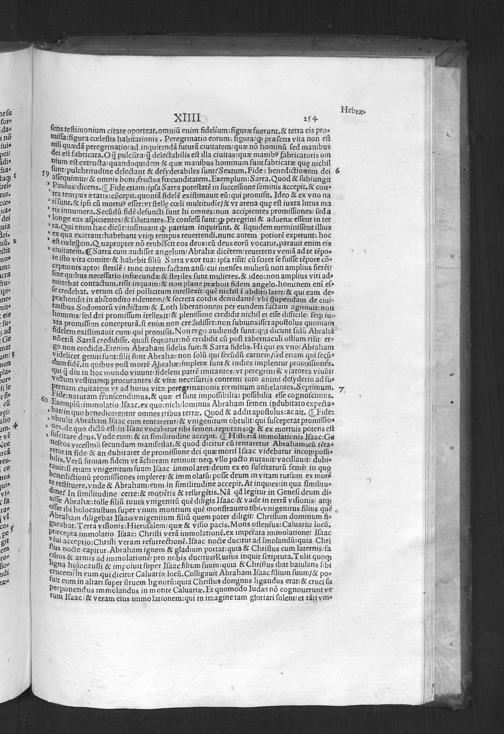 XIIII 254 Hebræ.
sens testimonium citare oporteat, omniū enim fidelium: figuræ fuerunt. & terra eis pro-
missa: figura cœlestis habitationis. Peregrinatio eorum: figura/ præsens vita non est
nisi quædā peregrinatio/ ad inquirendā futurā ciuitatem: quæ nō hominū sed manibus
dei est fabricata. O delectabilis est illa ciuitas: quæ manibus fabricatoris om
nium est extructa/ quandoquidem & quæ manibus hominum sunt fabricatæ que nichil
sunt: pulchritudine delectant & desyderabiles sunt? Sextum. Fide: benedictionem dei 6
19 assequimur/ & omnis boni fructus fœcunditatem. Exemplum: Sarra. Quod & subiungit
Paulus/ dicens. Fide etiam: ipsa Sarra potestatē in successione seminis accepit. & con-
tra tempus ætatis: cōcepit. quoniā fidelē existimauit eū: qui promisit. Ideo & ex vno na
ti sunt, & ipsi cū mortuo esset: vt stellę cœli multitudie/ & vt arena quę est iuxta littus ma
ris innumera. Secūdū fidē defuncti sunt hi omnes: non acceptis promissiones/ sed a
longe eas aspicientes/ & salutantes. Et confessi sunt: peregrini & aduenæ essent in ter
ra. Qui enim hæc dicūt: insinuant patriam inquirunt. & siquidem meminissent illius
ex qua exierant: habebant vti tempus reuertendi. nunc autem potiorē expetunt: hoc
est cœlestem. Quapropter nō erubescit eos deus: cū deus eorū vocatur. parauit enim eis
ciuitatem. Sarra cum audisset angelum/ Abrahæ dicētem/ reuertens veniā ad te tēpo-
te isto vita comite/ & habebit filiū Sarra vxor tua: ipsa risit/ eū sciret se fuisse tēpore cō-
ceptionis apto: sterilē/ nunc autem factam anū/ cui menses mulierū non amplius fierēt/
sine quibus necessario infœcundę/ & steriles sunt mulieres. & ideo: non amplius viri ad-
mittebat contactum. risit inquam/ & non plane præbuit fidem angelo. hominem enī es-
se credebat. verum cū dei pollicitum intellexit: quē nichil latere/ & qui eam de-
præhendit in abscōdito ridentem/ & secreta cordis denudantē vbi stupendam de ciui-
tatibus Sodomorū vindictam/ & Loth liberationem per eundem factam agnouit: non
hominis/ sed dei promissum intellexit/ & plenissime credidit nichil ei esse difficile. seq iu-
xta promissim concepturā. si enim non credidisset: non subiunxisset apostolus quoniam
fidelem existimauit eum: qui promisit. Non ergo audiendi sunt: qui dicunt solū
nō etiā Sarrā credidisse. quasi sequatur: nō credidit cū post tabernaculi ostium risit/ er-
go non credidit. Etenim Abraham fidelis fuit: & Sarra fidelis. Hi qui ex vno/ Abraham
videlicet geniti sunt: filii sunt Abrahæ/ non solū qui secūdū carnem/ sed etiam qui secū-
dum fidē. in quibus post morē Abrahæ: implęta sunt/ & indies implentur promissiones.
qui diu in hoc mundo viuunt: fidelem patrē imitantes: vt peregrini & viatores viuūt/
victum vestitum procurantes/ & vitæ necessariis contenti/ toto animi desyderio ad su-
pernam ciuitatem vt ad huius vitæ peregrinationis terminum anhelantes. Septimum. 7.
Fide: naturam transcendimus, & quæ ei sunt impossibilia: possibilia esse cognoscimus.
60 Exemplū: immolatio Isaac. ex quo: nichilominus Abraham semen indubitato expecta-
bat/ in quo benedicerentur omnes tribus terræ. Quod & addit apostolus: ac ait. Fide:
obtulit Abraham Isaac cum tentaretur/ & vnigenitum obtulit: qui susceperat promissio-
nes. de quo dictū est/ in Isaac vocabitur tibi semen. reputans: & ex mortuis potens est
suscitare deus. Vnde eum: & in similitudinē accepit. Historiā immolationis Isaac: Ge
nesεos vicesimū secundū manifestat. & quod dicitur
retur in fide/ & an dubitaret de promissione dei quæ morti Isaac videbatur incōpossi-
bilis. Verū firmam fidem vt achoram retinuit: ne vllo pacto nutauit/ vacillauit/ dubi-
tauit: si etiam vnigenitum suum Isaac immolaret: deum ex eo suscitaturū semē/ in quo
benedictionū promissiones impleret/ & immolatū posse deum in vitam rursum ex mor-
te restituere. vnde & Abraham: eum in similitudinē accepit. At inquies: in qua similitu-
dine? In similitudine certe: & mortētis & resurgētis. Nā legitur in Genesi deum di-
xisse Abrahæ: tolle filiū tuum vnigenitū quē diligis Isaac/ & vade in terrā visionis/ at
offer ibi holocaustum super vnum montium quē monstrauero tibi. vnigenitus filius quē
Abraham diligebat Isaac: vnigenitum filiū quem pater diligit/ Christum dominum fi-
gurabat. Terra visionis: Hierusalem/ quæ & visio pacis. Mons ostensus: Caluariæ locū.
præcepta immolatio Isaac: Christi verā immolationē. ex imperata immolatione/ Isaac
viui acceptio: Christi veram resurrectionē. Isaac nocte ducitur ad imolandū: quia Chri
stus nocte capitur. Abraham ignem & gladium portat: quia & Christus cum laternis/ fa
cibus & armis ad immolationē pro nobis ducitur. Rursus inquit scriptura. Tulit quo
ligna holocausti & imposuit super Isaac filium suum: quia & Christus ibat baiulans sibi
crucem in eum qui dicitur Caluariæ locū. Colligauit Abraham Isaac filium suum/ & po-
suit eum in altari super struem lignorū: quia Christus dominus ligandus erat/ & cruci sa
perponendus immolandus in monte Caluariæ. Et quomodo Iudæi nō cognouerunt ve
rum Isaac/ & veram eius immolationem: qui in imagine tam gloriari solent/ et tāti vm-